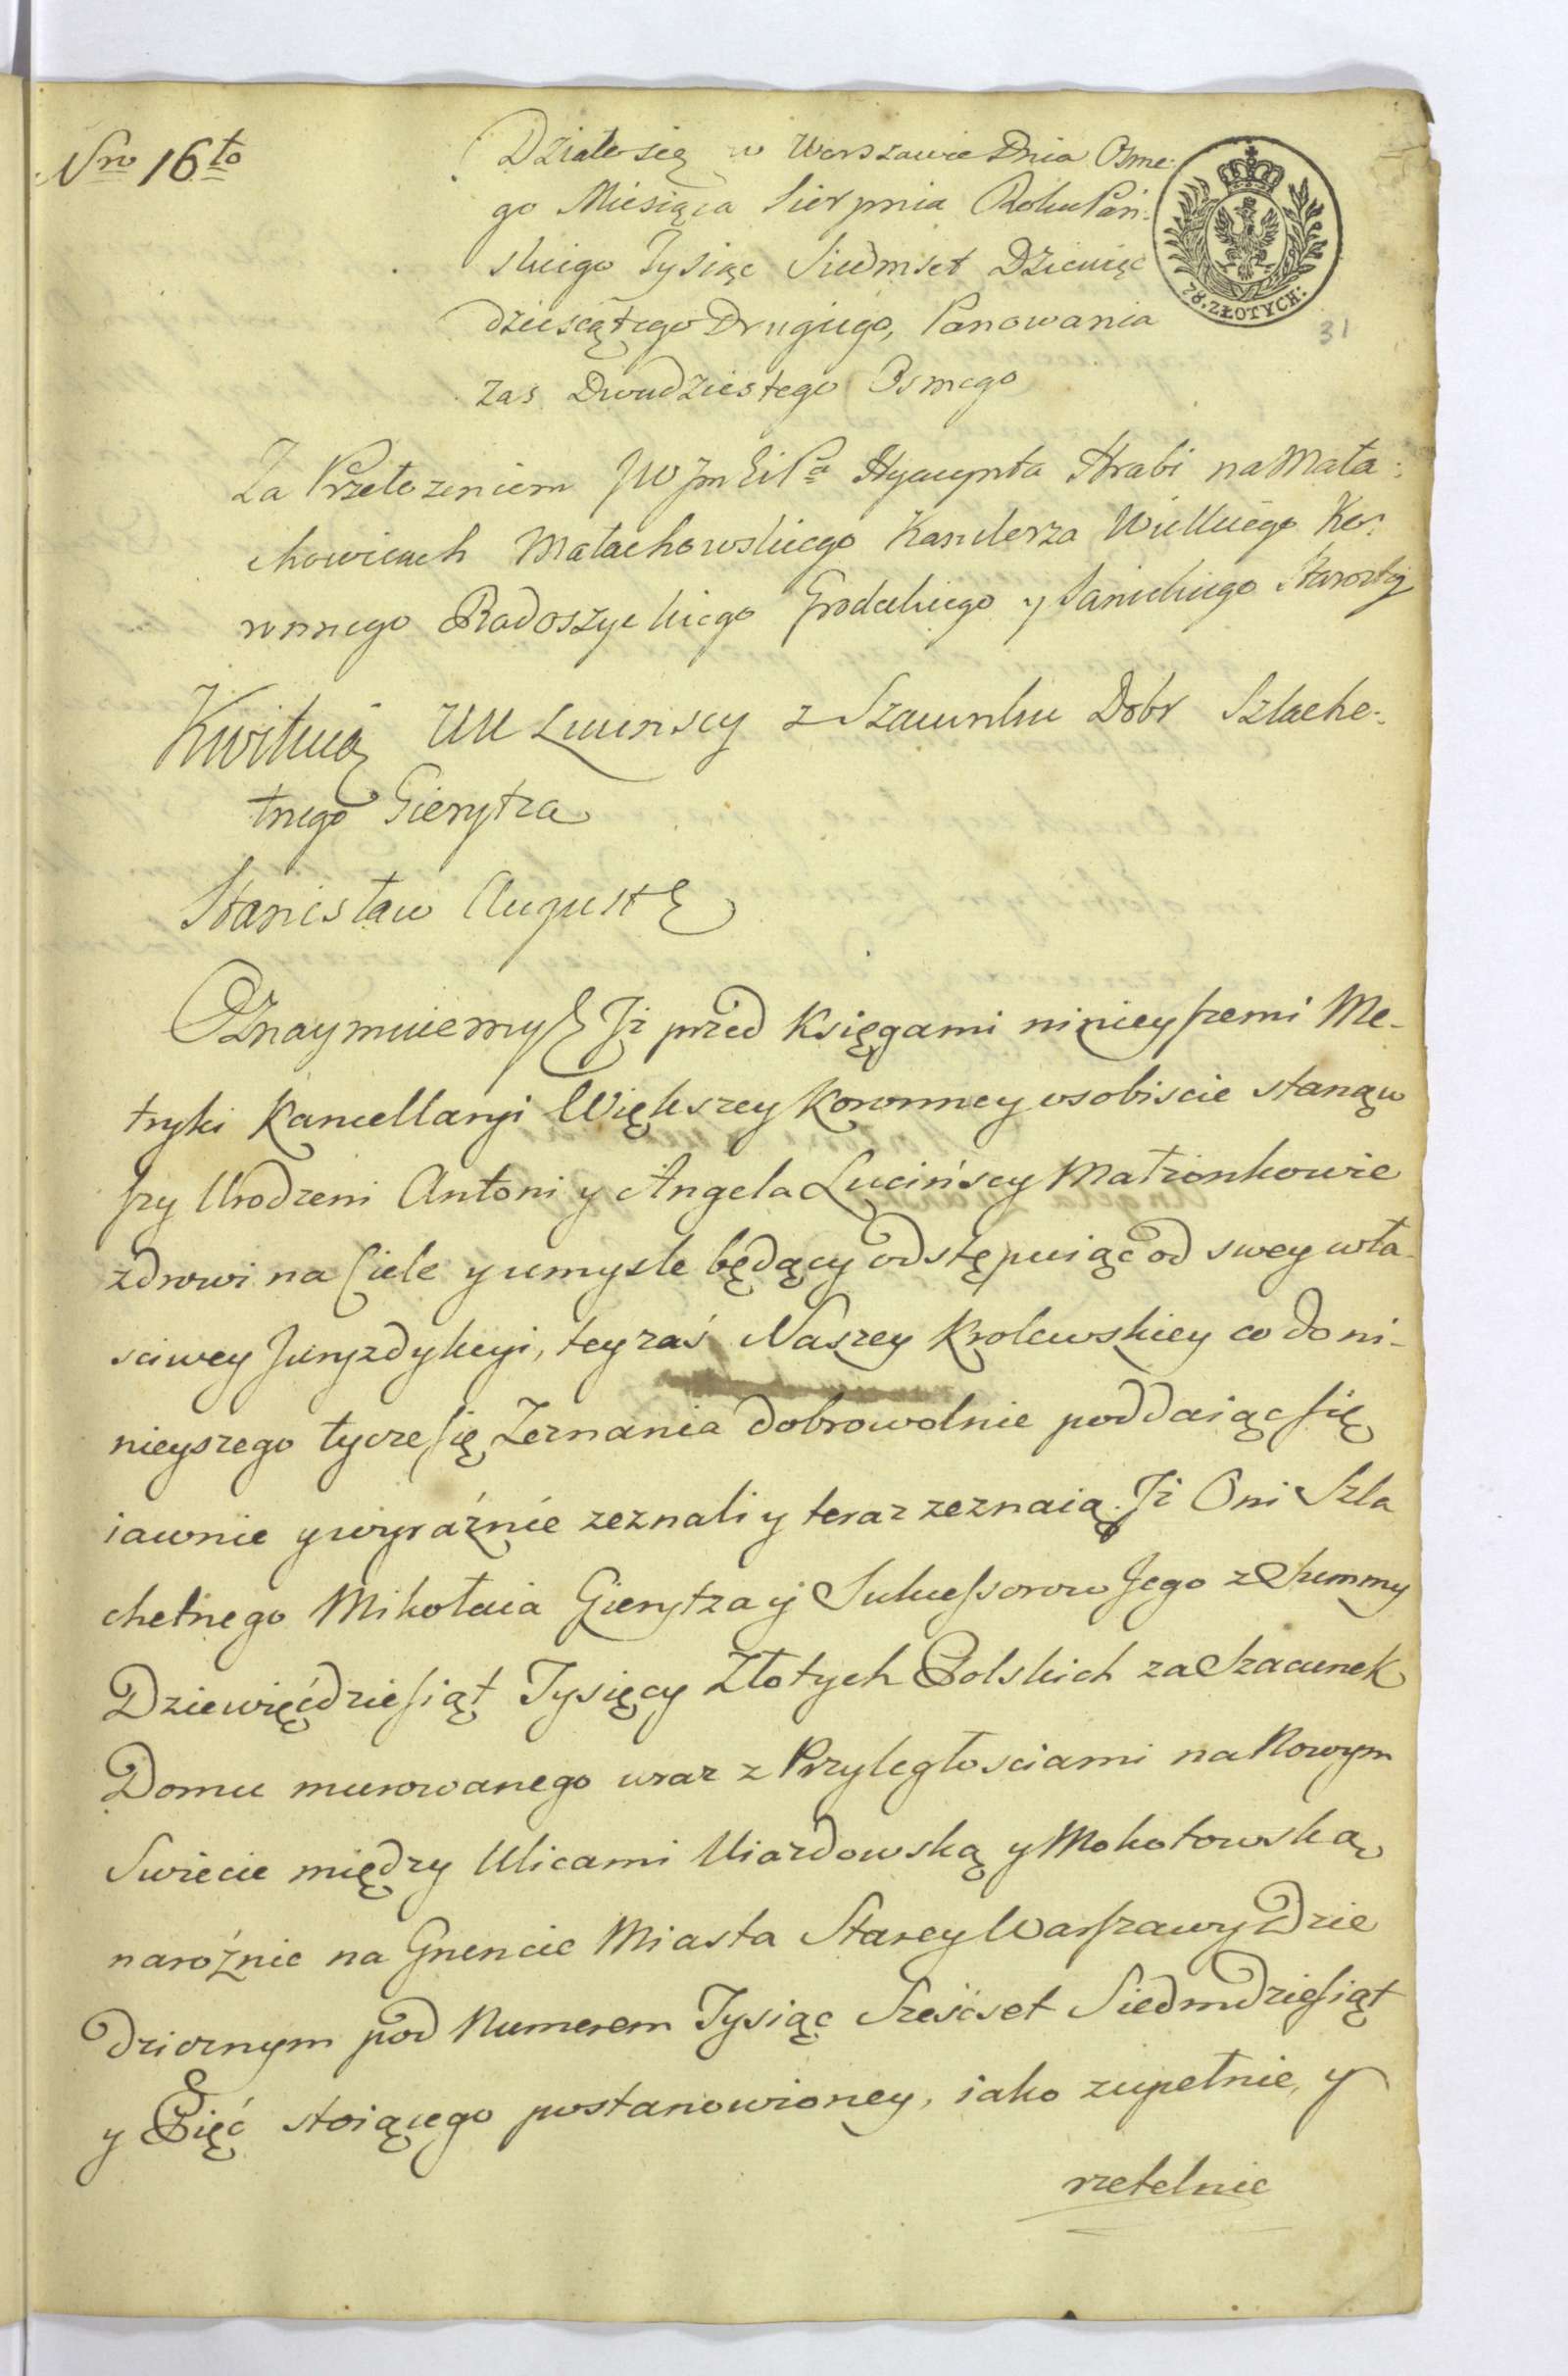 Nro 16to
Działo się w Warszawie Dnia Osme-
go Miesiąca Sierpnia Roku Pań-
skiego Tysiąc Siedmset Dziewięć
dziesiątego Drugiego, Panowania
zas Dwudziestego Osmego
78. ZŁOTYCH:
31
Za Przełozeniem JW Jm Pa Hyacynta Hrabi na Mała-
chowicach Małachowskiego Kanclerza Wielkiego Ko-
ronnego Radoszyckiego Grodeckiego y Sanickiego Starosty
Kwituią UU Lucinscy z Szacunku Dobr Szlache-
tnego Gierytza
Stanisław August
Oznaymuiemy Iż przed Księgami ninieyszemi Me-
tryki Kancellaryi Większey Koronney osobiscie stanąw
szy Urodzeni Antoni y Angela Lucińscy Małżonkowie
zdrowi na Ciele y umysle będący odstępuiąc od swey wła-
sciwey Juryzdykcyi, tey zaś Naszey Krolewskiey co do ni-
nieyszego tycze się Zeznania dobrowolnie poddaiąc się
iawnie y wyraźnie zeznali y teraz zeznaią. Iż Oni Szla
chetnego Mikołaia Gierytza y Sukcessorow Jego z Summy
Dziewięćdziesiąt Tysięcy Złotych Polskich za Szacunek
Domu murowanego wraz z Przyległosciami na Nowym
Swiecie między Ulicami Uiazdowską y Mokotowską
narożnie na Gruncie Miasta Starey Warszawy Dzie
dzicznym pod Numerem Tysiąc Sześćset Siedmdziesiąt
y Pięć stoiącego postanowioney, iako zupełnie, y
rzetelnie